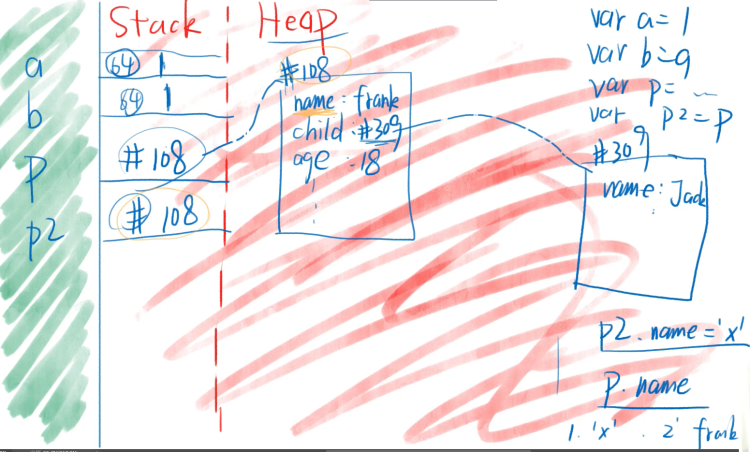 Stack
Heap
a
b
p
p2
64 1
64 1
#108
#108
#108
name: frank
child: #309
age: 18
var a=1
var b=a
var p= ...
var p2=p
#309
name: Jack
p2.name='x'
p.name
1. 'x' . 2' frank